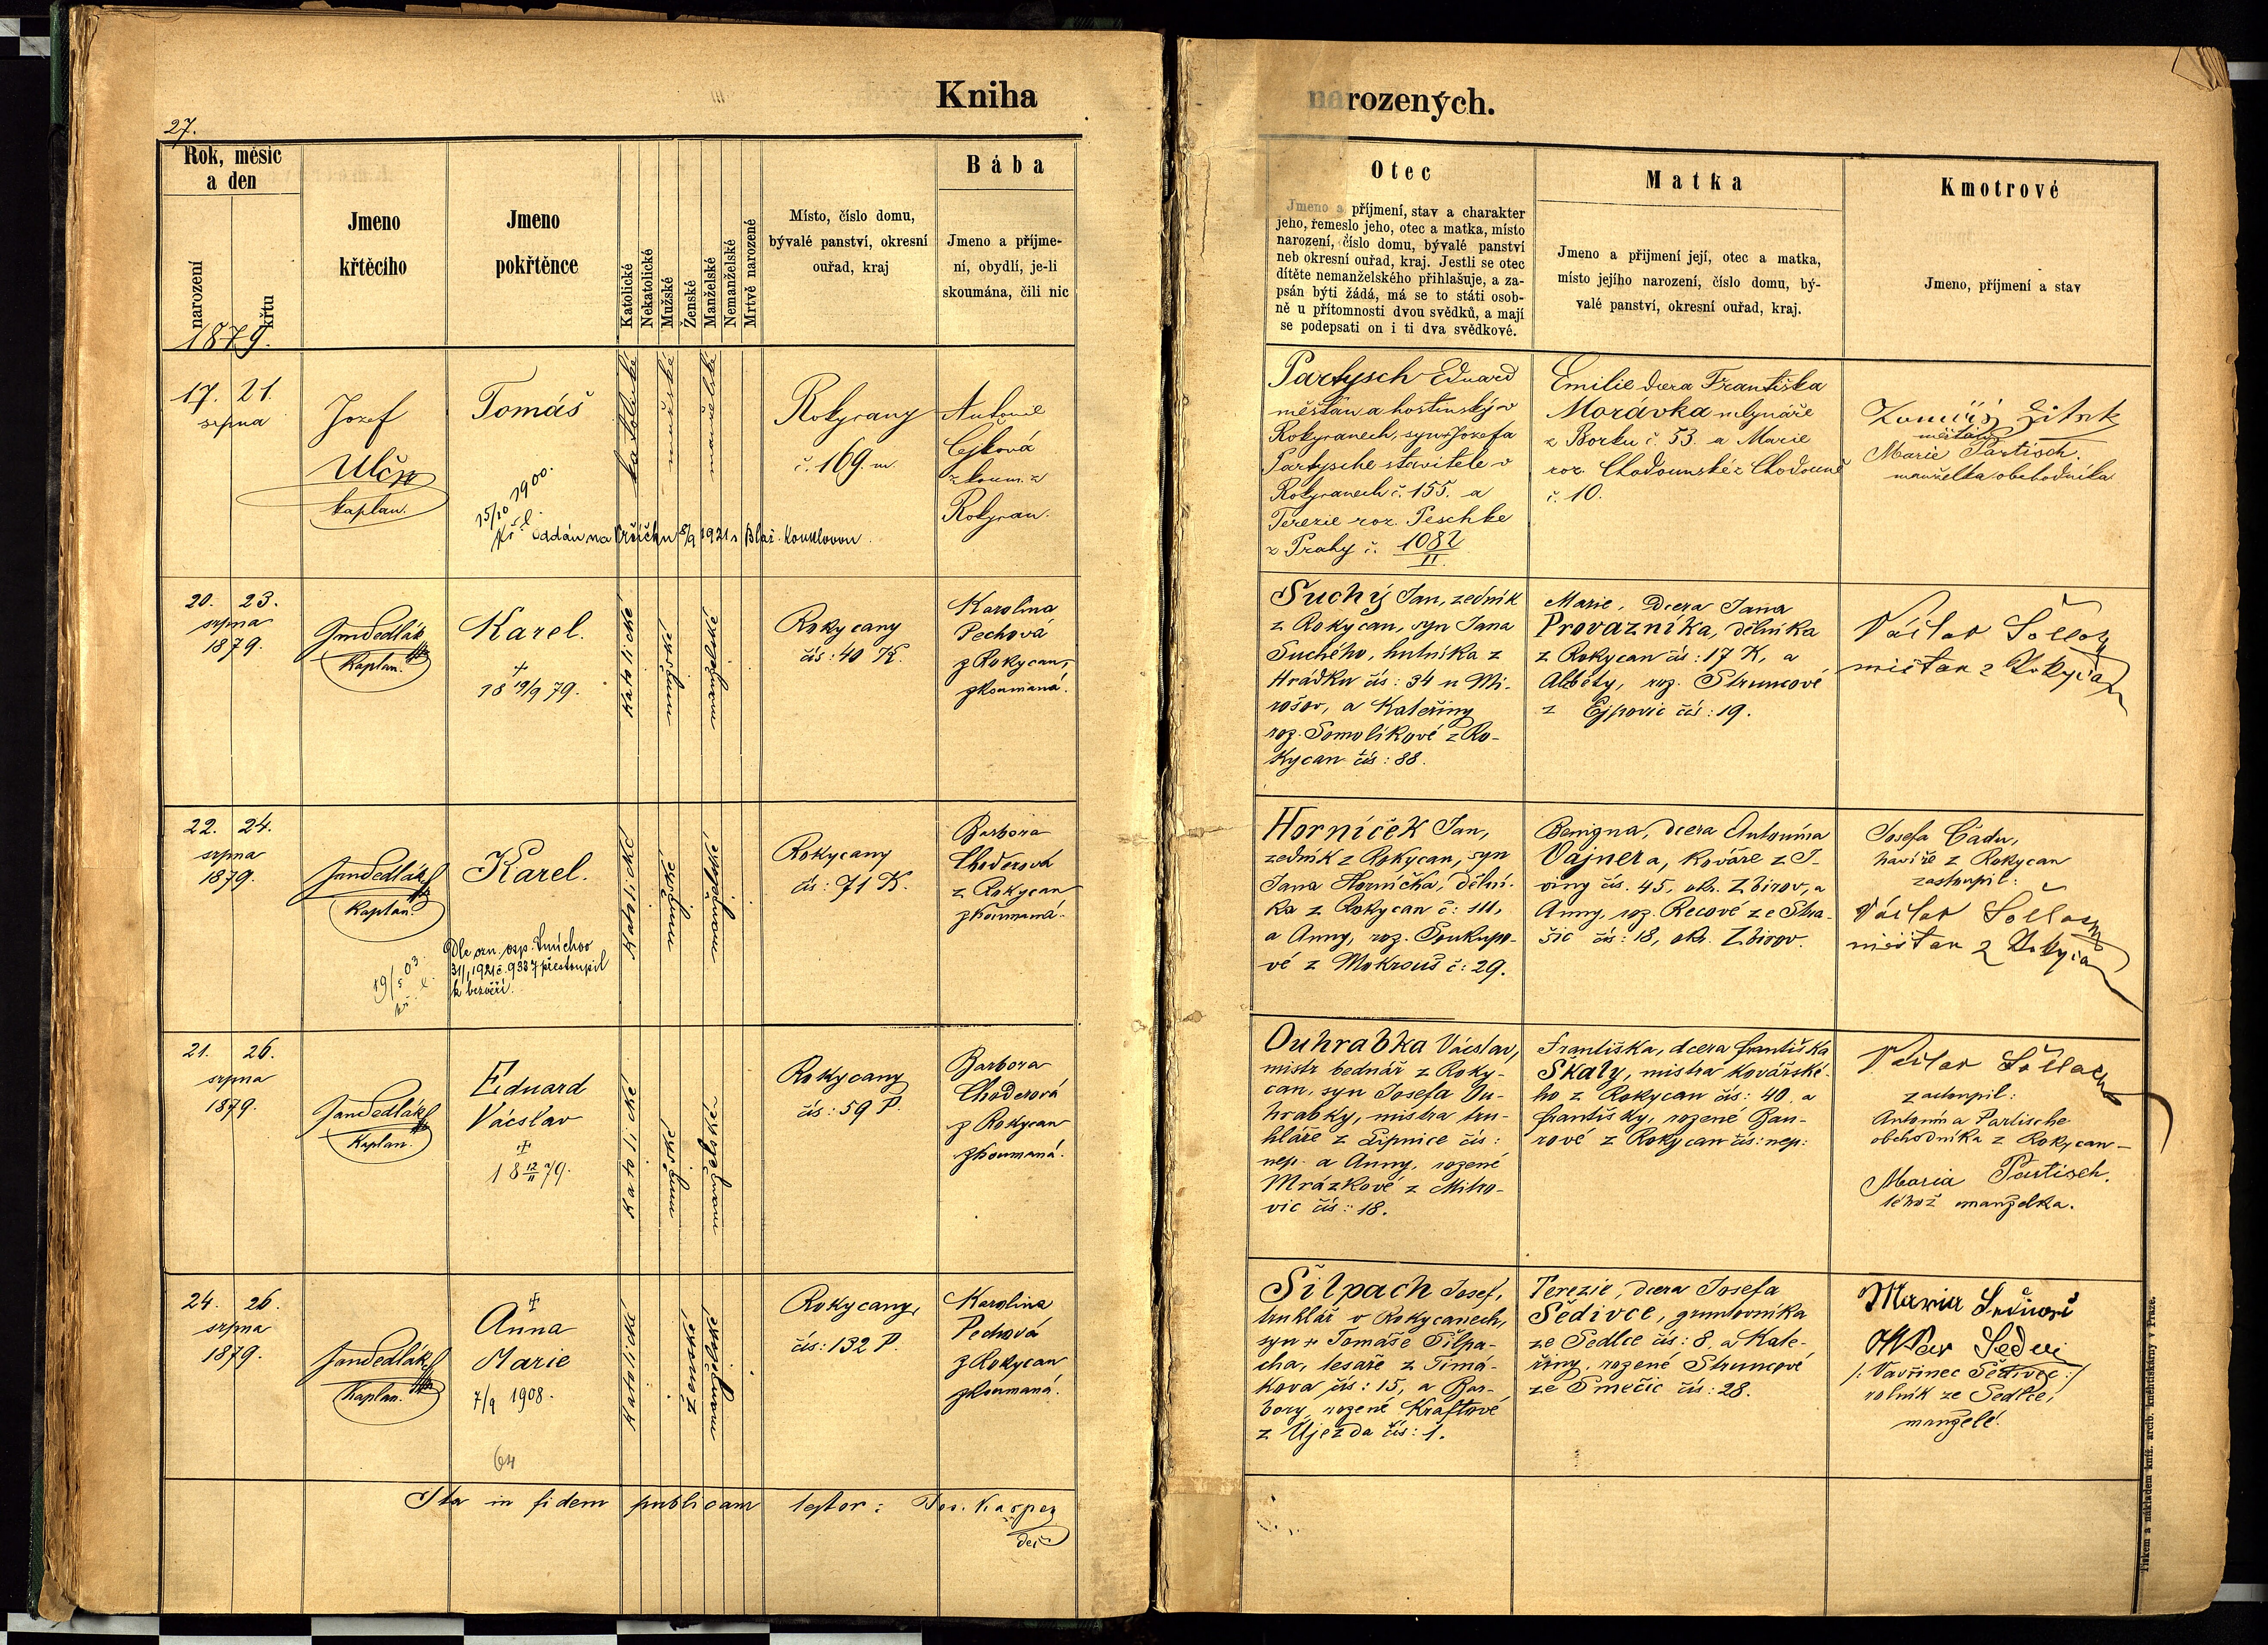 27.
Kniha narozených.
Rok, měsíc
a den
narození
křtu
1879.
Jmeno
křtěcího
Jmeno
pokřtěnce
Katolické
Nekatolické
Mužské
Ženské
Manželské
Nemanželské
Mrtvě narozené
Místo, číslo domu,
bývalé panství, okresní
ouřad, kraj
Bába
Jmeno a příjme-
ní, obydlí, je-li
skoumána, čili nic
Otec
Jmeno a příjmení, stav a charakter
jeho, řemeslo jeho, otec a matka, místo
narození, číslo domu, bývalé panství
neb okresní ouřad, kraj. Jestli se otec
dítěte nemanželského přihlašuje, a za-
psán býti žádá, má se to státi osob-
ně u přítomnosti dvou svědků, a mají
se podepsati on i ti dva svědkové.
Matka
Jmeno a přijmení její, otec a matka,
místo jejího narození, číslo domu, bý-
valé panství, okresní ouřad, kraj.
Kmotrové
Jmeno, příjmení a stav
17. 21.
srpna
Jozef
Ulč
kaplan.
Tomáš
15/10 1900.
kř. l.
oddán na Vršíčku 8/9 1921 s Blaž. Kouklovou.
katolické
mužské
manželské
Rokycany
č. 169. m.
Antonie
Cejková
zkoum. z
Rokycan.
Partysch Eduard
měšťan a hostinský v
Rokycanech, syn Jozefa
Partysche stavitele v
Rokycanech č. 155. a
Terezie roz. Peschke
z Prahy č. 1082
II.
Emilie dcera Františka
Morávka mlynáře
z Borku č. 53. a Marie
roz. Chodounské z Chodouně
č. 10.
Tomáš Žitek
měšťan
Marie Partisch.
manželka obchodníka
20. 23.
srpna
1879.
Jan Sedlák
Kaplan.
Karel.
†
18 19/9 79.
Katolické
mužské
manželské
Rokycany
čís: 40 K.
Karolina
Pechová
z Rokycan,
zkoumaná.
Suchý Jan, zedník
z Rokycan, syn Jana
Suchého, hutníka z
Hrádku čís: 34 u Mi-
rošov, a Kateřiny
roz. Somolíkové z Ro-
kycan čís: 88.
Marie, dcera Jana
Provazníka, dělníka
z Rokycan čís: 17 K, a
Alžběty, roz. Štruncové
z Ejpovic čís: 19.
Václav
měšťan z
22. 24.
srpna
1879.
Jan Sedlák
Kaplan.
Karel.
19/5 03.
kř. l.
Dle ozn. osp. Smíchov
31/1 1921 č. 9337 přestoupil
k bezvěří.
Katolické
mužské
manželské
Rokycany
čís: 71 K.
Barbora
Choderová
z Rokycan
zkoumaná.
Horníček Jan,
zedník z Rokycan, syn
Jana Horníčka, dělní-
ka z Rokycan č: 111,
a Anny, roz. Soukupo-
vé z Mokrouš č: 29.
Benigna, dcera Antonína
Vajnera, kováře z J-
viny čís. 45, okr. Zbirov, a
Anny, roz. Recové ze Stra-
šic čís: 18, okr. Zbirov.
Josefa Čadu,
havíře z Rokycan
zastoupil:
Václav
měšťan z
21. 26.
srpna
1879.
Jan Sedlák
Kaplan.
Eduard
Václav
†
18 12/11 79.
Katolické
mužské
manželské
Rokycany
čís: 59 P.
Barbora
Choderová
z Rokycan
zkoumaná.
Ouhrabka Václav,
mistr bednář z Roky-
can, syn Josefa Ou-
hrabky, mistra tru-
hláře z Lipnice čís:
nep. a Anny, rozené
Mrázkové z Mitro-
vic čís: 18.
Františka, dcera Františka
Škaly, mistra kovářské-
ho z Rokycan čís: 40 a
Františky, rozené Bau-
rové z Rokycan čís: nep:
Václav
zastoupil:
Antonína Partische
obchodníka z Rokycan –
Maria Partisch.
téhož manželka.
24. 26.
srpna
1879.
Jan Sedlák
Kaplan.
†
Anna
Marie
7/9 1908.
64
Katolické
ženské
manželské
Rokycany,
čís: 132 P.
Karolina
Pechová
z Rokycan
zkoumaná.
Šilpach Josef,
truhlář v Rokycanech,
syn † Tomáše Šilpa-
cha, tesaře z Timá-
kova čís: 15, a Bar-
bory rozené Kraftové
z Újezda čís: 1.
Terezie, dcera Josefa
Šedivce, gruntovníka
ze Sedlce čís: 8, a Kate-
řiny, rozené Štruncové
ze Smečic čís: 28.
Maria
/: Vavřinec Šedivec :/
rolník ze Sedlce,
manželé.
Ita in fidem publicam testor: Jos. Kašpar
děk.
Tiskem a nákladem kníž. arcib. knihtiskárny v Praze.